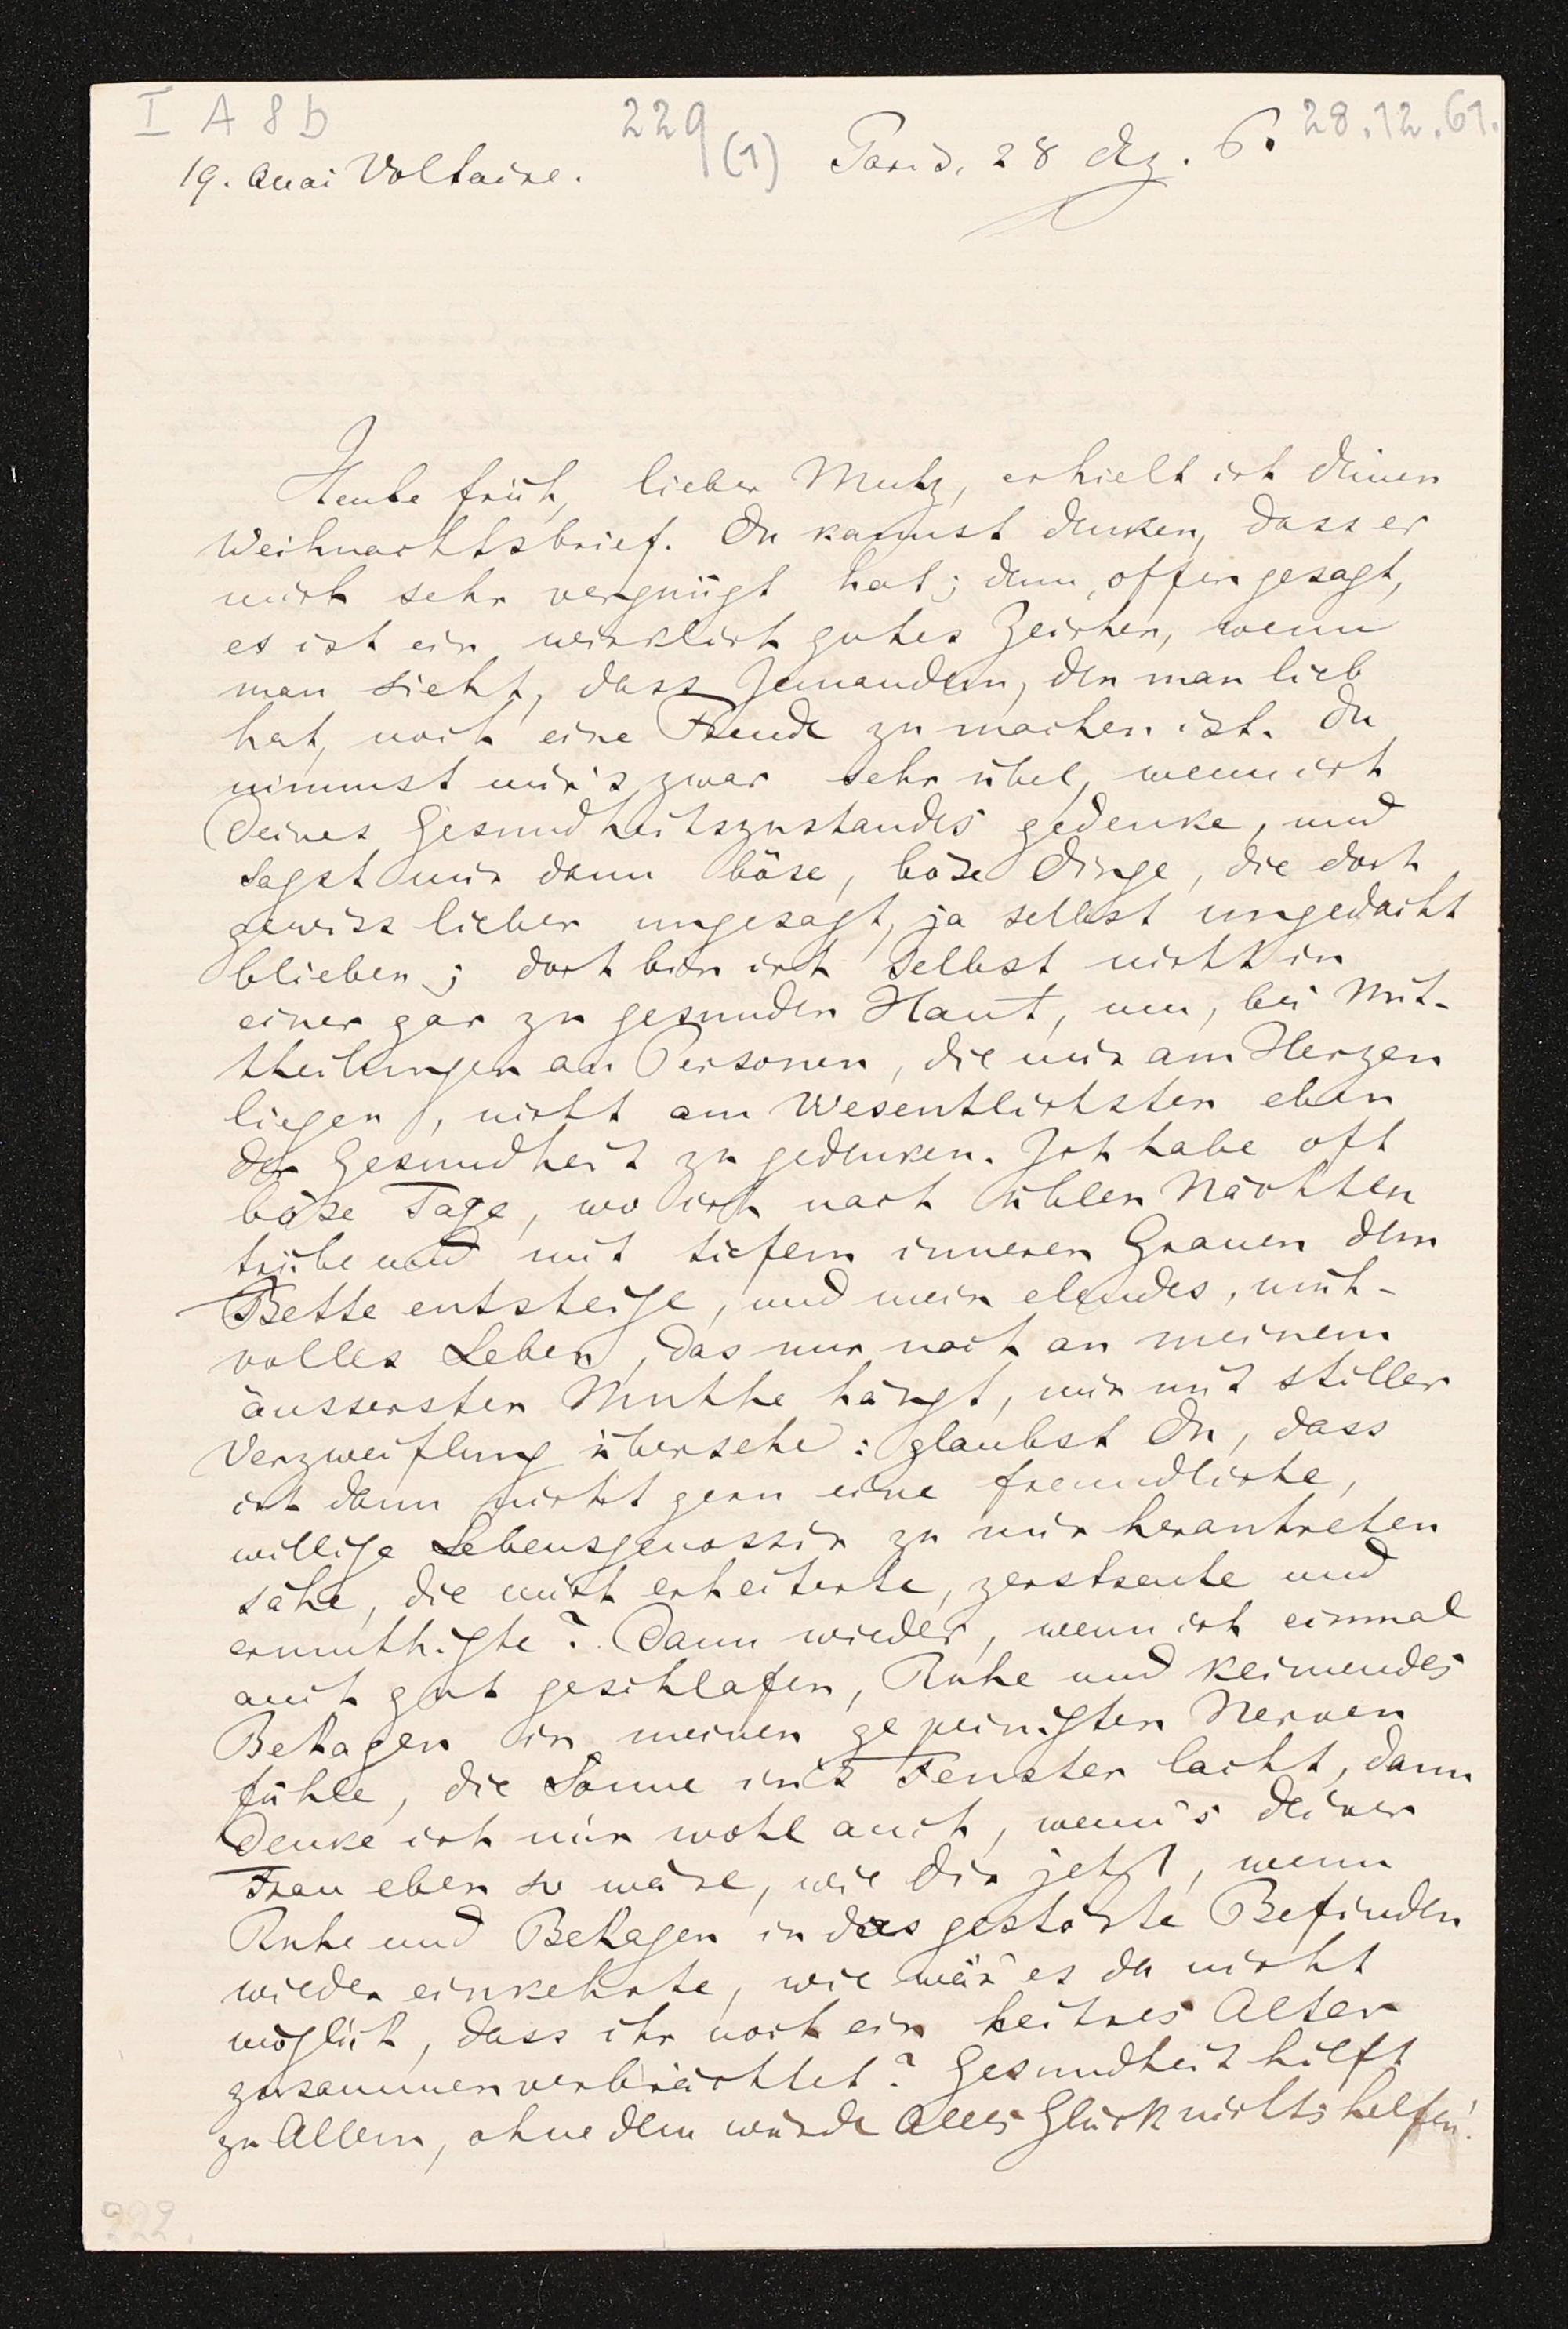 I A 8 b
229 (1)
28.12.61.
19. Quai Voltaire.
Paris, 28 Dez. 6.
Heute früh, lieber Mutz, erhielt ich deinen
Weihnachtsbrief. Du kannst denken, dass er
mich sehr vergnügt hat; denn, offen gesagt,
es ist ein wirklich gutes Zeichen, wenn
man sieht, dass Jemandem, den man lieb
hat, noch eine Freude zu machen ist. Du
nimmst mir's zwar sehr übel, wenn ich
Deines Gesundheitszustandes gedenke, und
sagst mir dann böse, böse Dinge, die doch
gewiss lieber ungesagt, ja selbst ungedacht
blieben; doch bin ich selbst nicht in
einer gar zu gesunden Haut, um, bei Mit-
theilungen an Personen, die mir am Herzen
liegen, nicht am Wesentlichsten eben
der Gesundheit zu gedenken. Ich habe oft
böse Tage, wo ich nach üblen Nächten
trübe und mit tiefem inneren Grauen dem
Bette entsteige, und mein elendes, müh-
volles Leben, das nur noch an meinem
äussersten Muthe hängt, mir mit stiller
Verzweiflung übersehe: glaubst Du, dass
ich dann nicht gern eine freundliche,
willige Lebensgenossin zu mir herantreten
sähe, die mich erheiterte, zerstreute und
ermuthigte? Dann wieder, wenn ich einmal
auch gut geschlafen, Ruhe und keimendes
Behagen in meinen gepeinigten Nerven
fühle, die Sonne in's Fenster lacht, dann
denke ich mir wohl auch, wenn's deiner
Frau eben so wäre, wie dir jetzt, wenn
Ruhe und Behagen in das gestörte Befinden
wieder einkehrte, wie wär' es da nicht
möglich, dass ihr noch ein heitres Alter
zusammen verbrächtet? Gesundheit hilft
zu Allem, ohne dem würde alles Glück nichts helfen!
222.